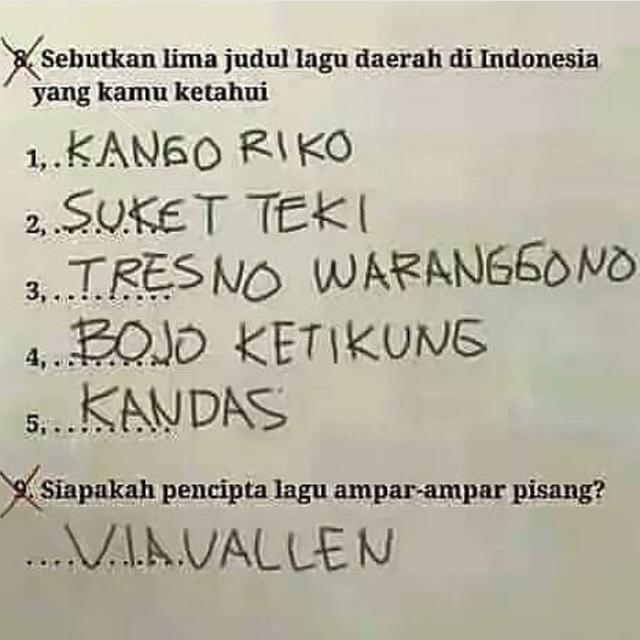 8. Sebutkan lima judul lagu daerah di Indonesia
yang kamu ketahui
1,..KANGO RIKO
2,..SUKET TEKI
3,..TRESNO WARANGGONO
4,..BOJO KETIKUNG
5,..KANDAS
9. Siapakah pencipta lagu ampar-ampar pisang?
....VIA VALLEN